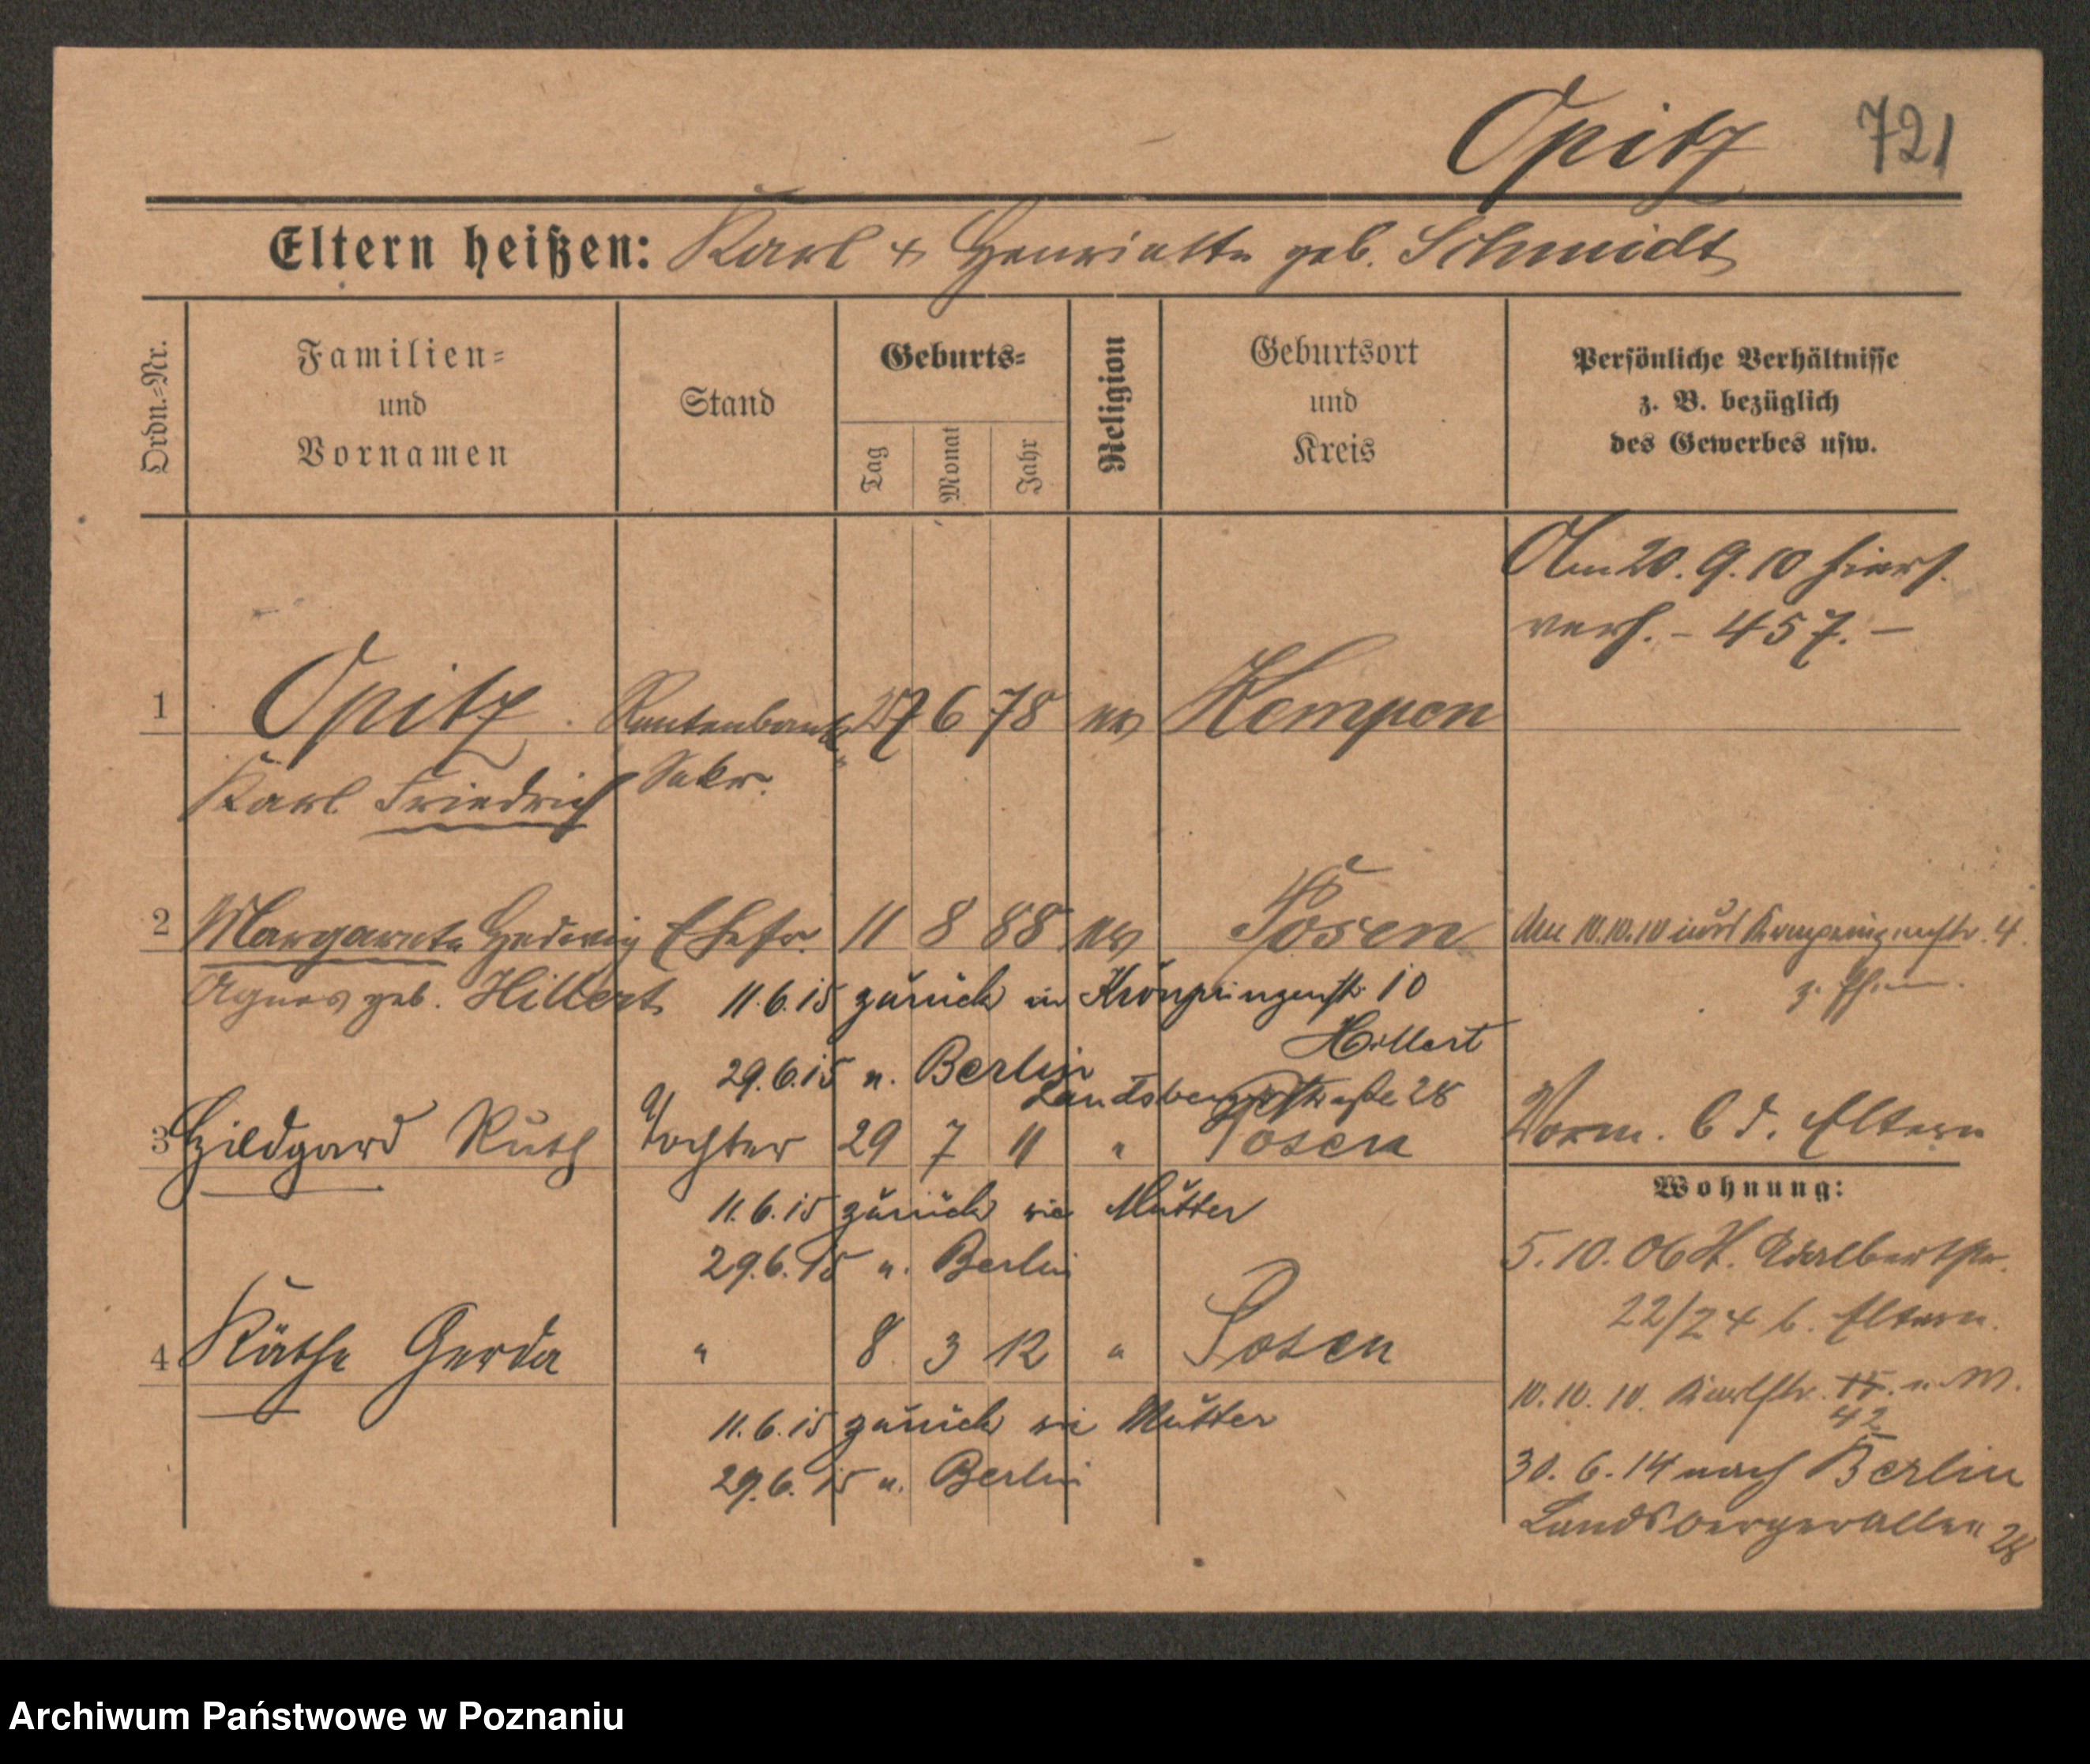 Opitz 721
Eltern heißen: Karl & Henriette geb. Schmidt
Ordn.-Nr.
Familien-
und
Vornamen
Stand
Geburts-
Tag
Monat
Jahr
Religion
Geburtsort
und
Kreis
Persönliche Verhältnisse
z. B. bezüglich
des Gewerbes usw.
Am 20. 9. 10 hiers.
verh. - 457. -
1 Opitz Rentenbank- 27 6 78 ev Kempen
Karl Friedrich Sekr.
2 Margarete Hedwig Ehefr. 11 8 88 ev Posen
den 10.10.10 Kronprinzenstr. 4.
Agnes geb. Hillert 11.6.15 zurück in Kronprinzenstr. 10
Hillert
29.6.15 n. Berlin
Landsbergerstraße 28
3 Hildgard Ruth Tochter 29 7 11 " Posen
Vorm. b d. Eltern
11.6.15 zurück wie Mutter
29.6.15 n. Berlin
4 Käthe Gerda " 8 3 12 " Posen
11.6.15 zurück wie Mutter
29.6.15 n. Berlin
Wohnung:
5.10.06 St. Adalbertstr.
22/24 b. Eltern.
10.10.10. Karlstr. 15. n. M.
42
30.6.14 nach Berlin
Landsbergerallee 28
Archiwum Państwowe w Poznaniu